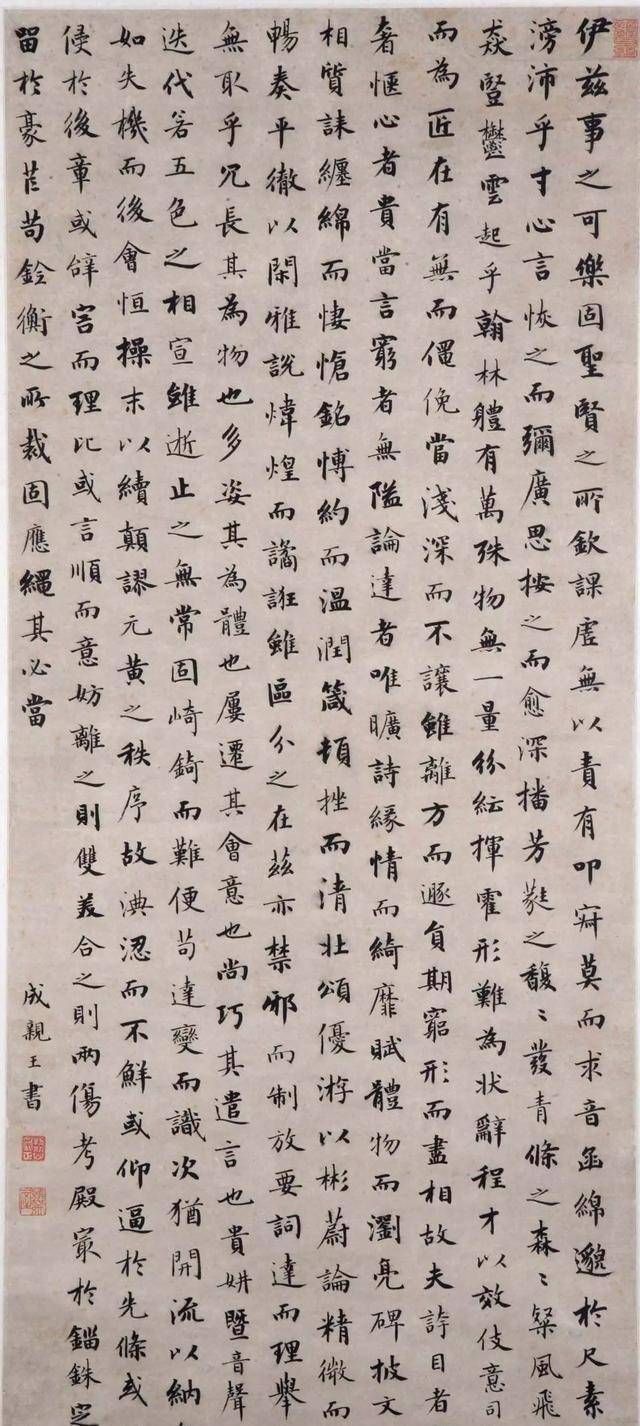 伊茲事之可樂固聖賢之所欽課虛無以責有叩寂莫而求音函綿邈於尺素
滂沛乎寸心言恢之而彌廣思按之而愈深播芳蕤之馥〻發青條之森〻粲風飛
猋豎鬱雲起乎翰林體有萬殊物無一量紛紜揮霍形難為狀辭程才以效伎意司
而為匠在有無而僶俛當淺深而不讓雖離方而遯員期窮形而盡相故夫誇目者
奢愜心者貴當言窮者無隘論達者唯曠詩緣情而綺靡賦體物而瀏亮碑披文
相質誄纏綿而悽愴銘博約而溫潤箴頓挫而清壯頌優游以彬蔚論精微而
暢奏平徹以閑雅說煒煌而譎誑雖區分之在茲亦禁邪而制放要詞達而理舉
無取乎冗長其為物也多姿其為體也屢遷其會意也尚巧其遣言也貴妍暨音聲
迭代若五色之相宣雖逝止之無常固崎錡而難便苟達變而識次猶開流以納
如失機而後會恒操末以續顛謬元黃之秩序故淟涊而不鮮或仰逼於先條或
侵於後章或辭害而理比或言順而意妨離之則雙美合之則兩傷考殿最於錙銖定
留於豪芒苟銓衡之所裁固應繩其必當
成親王書